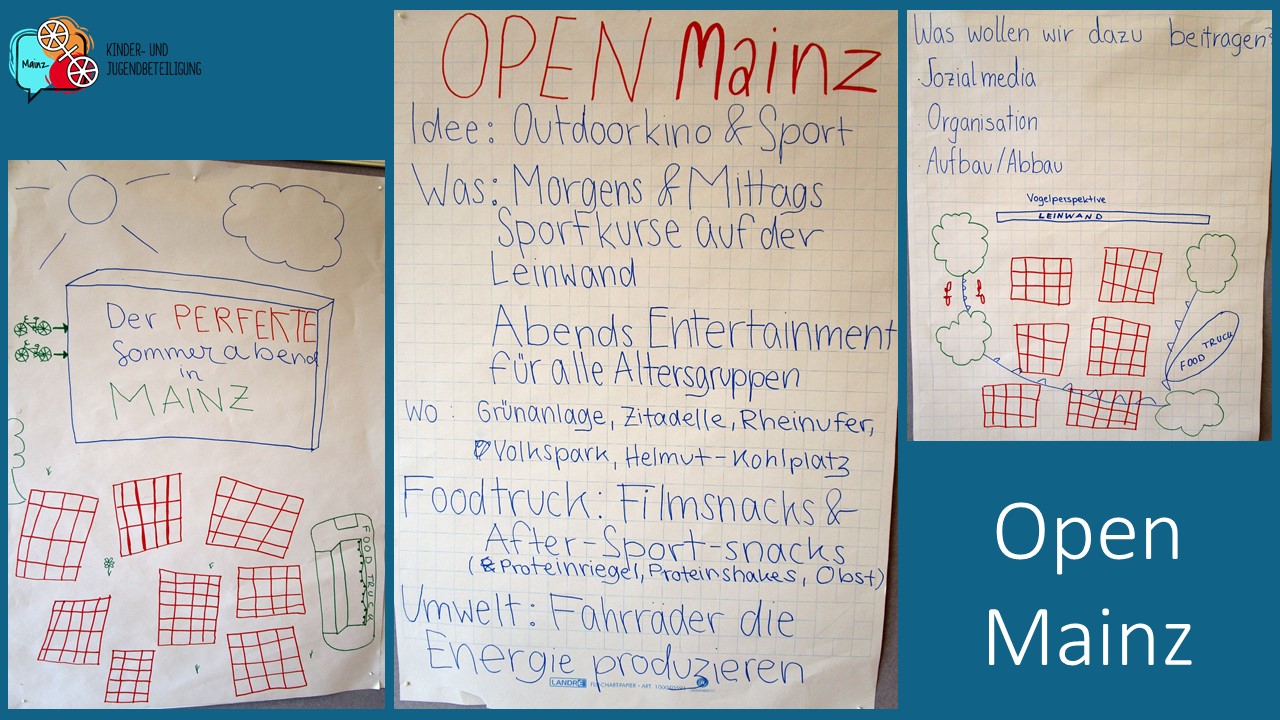 Mainz
KINDER- UND
JUGENDBETEILIGUNG
Der PERFEKTE
Sommerabend
in
MAINZ
FOOD TRUCK
OPEN Mainz
Idee: Outdoorkino & Sport
Was: Morgens & Mittags
Sportkurse auf der
Leinwand
Abends Entertainment
für alle Altersgruppen
WO: Grünanlage, Zitadelle, Rheinufer,
Volkspark, Helmut-Kohlplatz
Foodtruck: Filmsnacks &
After-Sport-snacks
(& Proteinriegel, Proteinshakes, Obst)
Umwelt: Fahrräder die
Energie produzieren
LANDRÉ FLIPCHARTPAPIER · ART.
Was wollen wir dazu beitragen?
· Sozialmedia
· Organisation
· Aufbau/Abbau
Vogelperspektive
LEINWAND
FOOD TRUCK
Open
Mainz